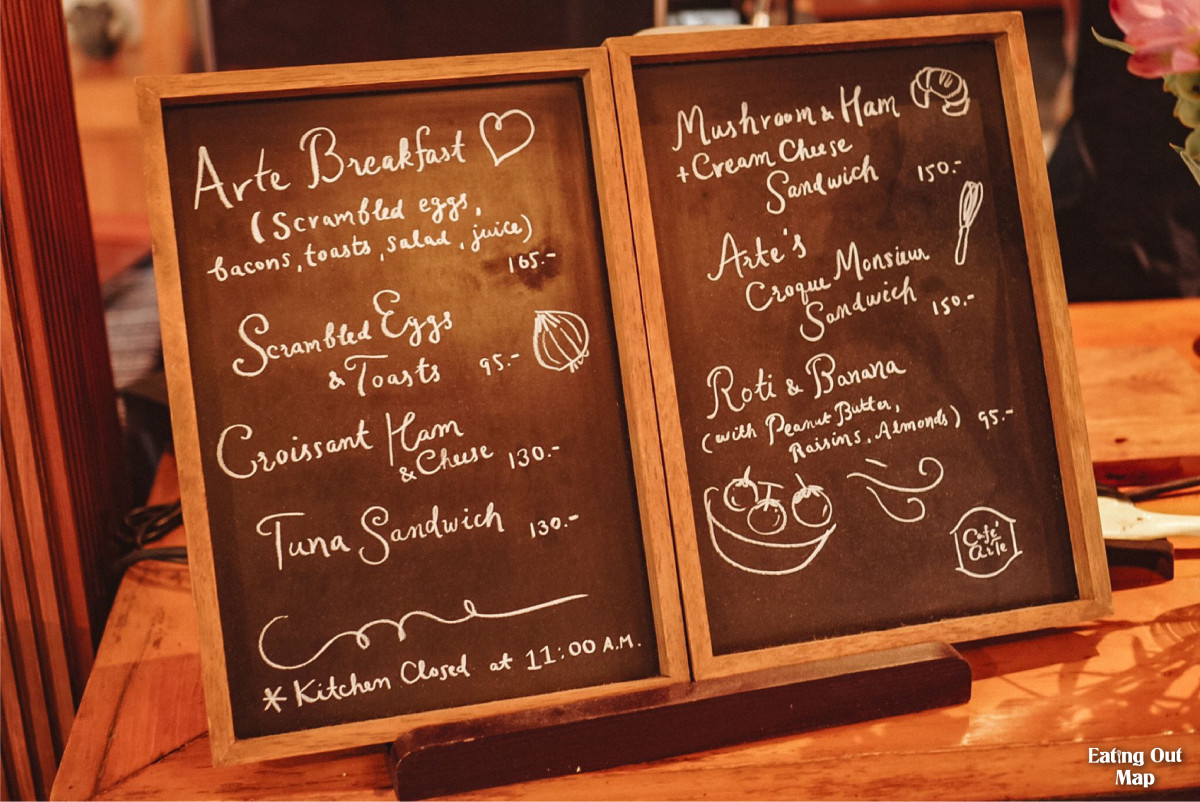 Arte Breakfast
(Scrambled eggs,
bacons, toasts, salad, juice)
165.-
Scrambled Eggs
& Toasts 95.-
Croissant Ham
& Cheese 130.-
Tuna Sandwich 130.-
* Kitchen Closed at 11:00 A.M.
Mushroom & Ham
+ Cream Cheese
Sandwich 150.-
Arte's
Croque Monsieur
Sandwich 150.-
Roti & Banana
(with Peanut Butter,
Raisins, Almonds) 95.-
Café
arte
Eating Out
Map